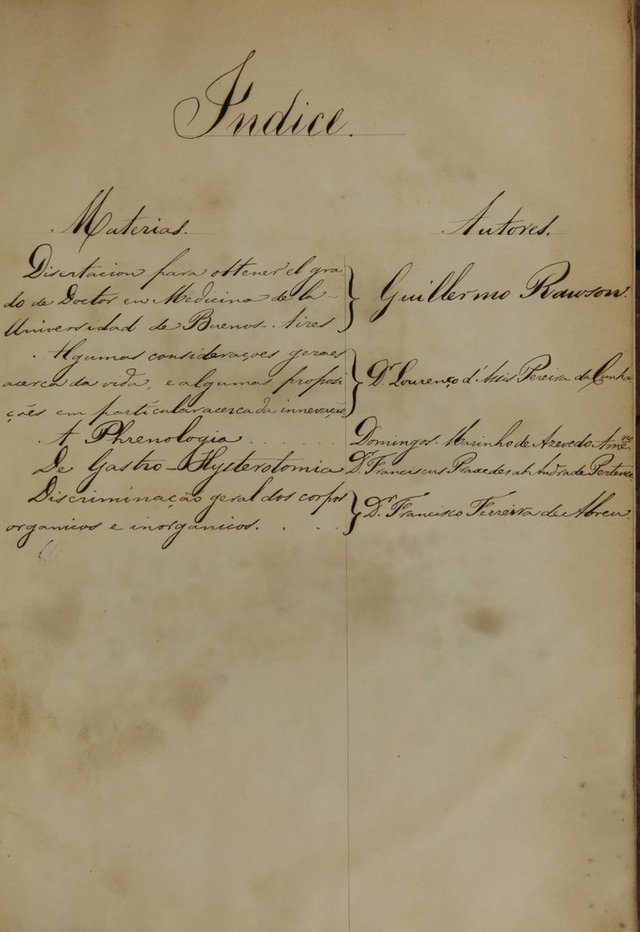 Índice.
Materias. Autores.
Disertacion para obtener el gra
do de Doctor en Medicina de la
Universidad de Buenos-Aires
Guillermo Rawson.
Algumas considerações geraes
acerca da vida, e algumas proposi
ções em particular acerca da innervação
Dr. Lourenço d'Assis Pereira da Cunha
A Phrenologia . . . . . . Domingos Marinho de Azevedo Ame.no
De Gastro-Hysterotomia Dr. Franciscus Praxedes ab Andrade Pertence
Discriminação geral dos corpos
organicos e inorganicos. . . .
Dr. Francisco Ferreira de Abreu